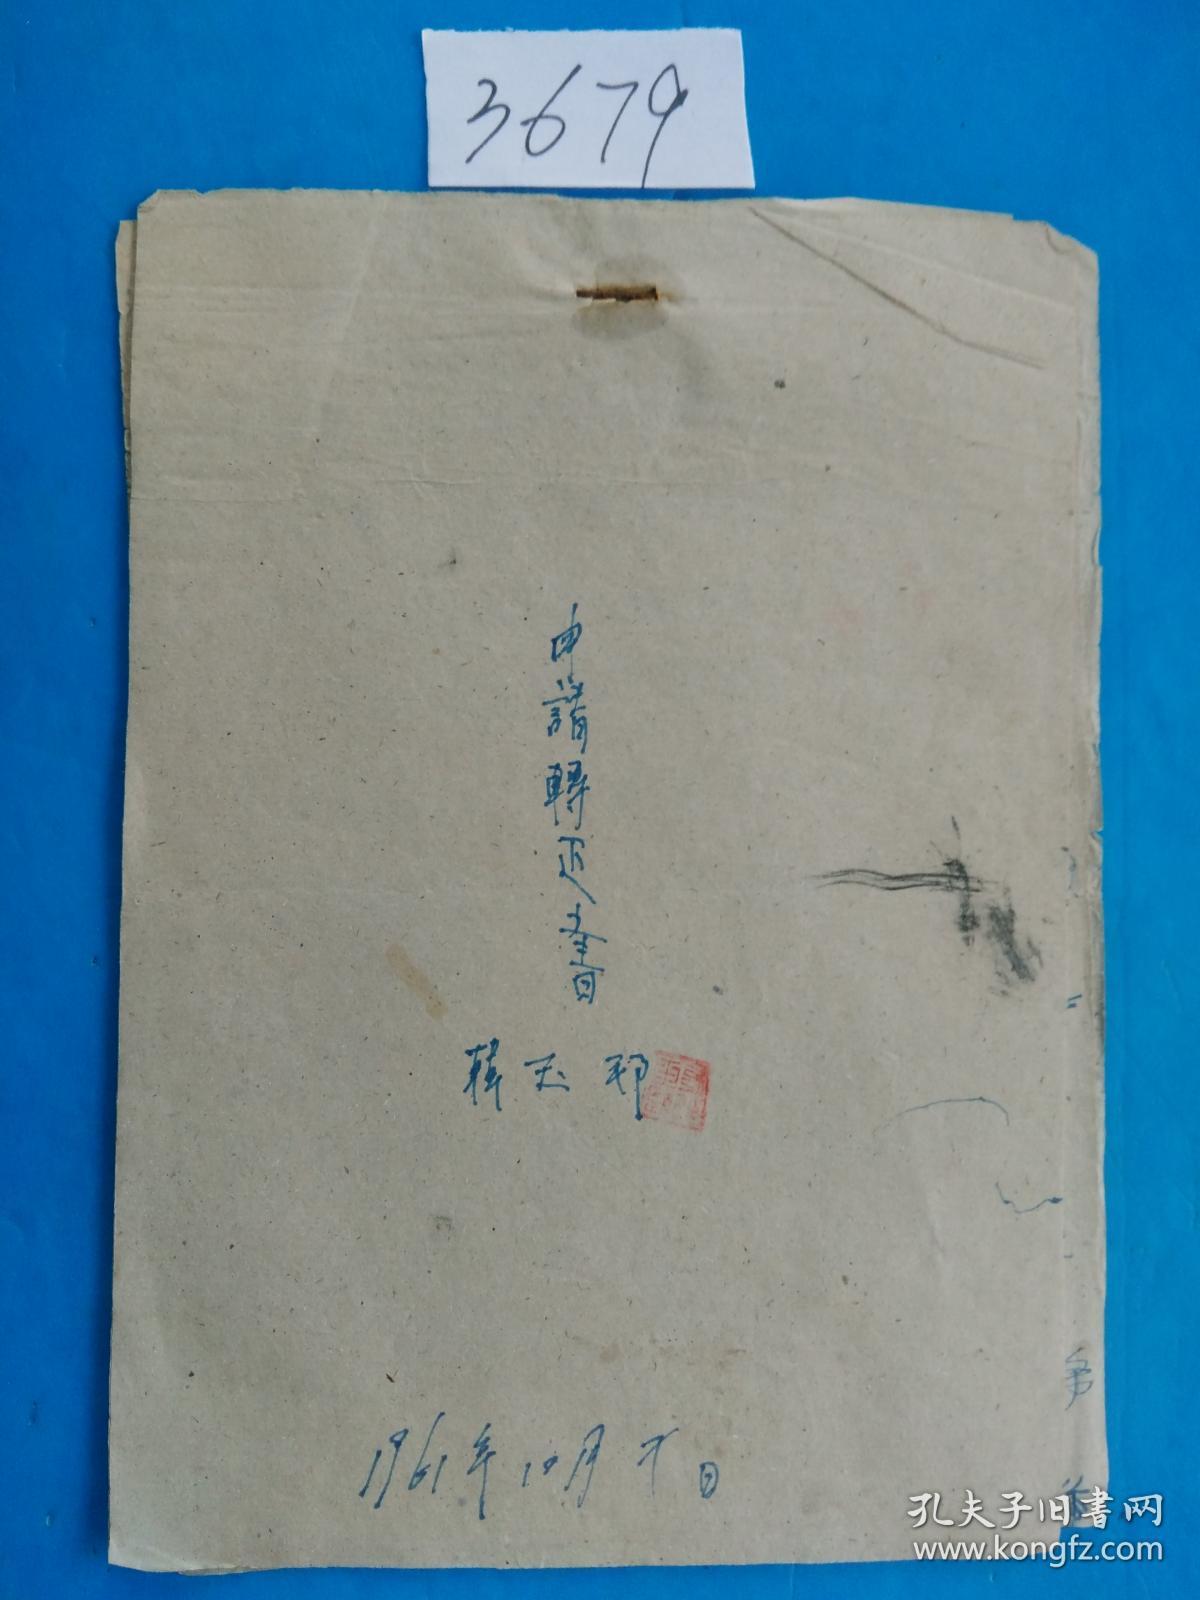 3679
申請轉正書
韓玉邦
1961年10月 日
孔夫子旧书网
www.kongfz.com